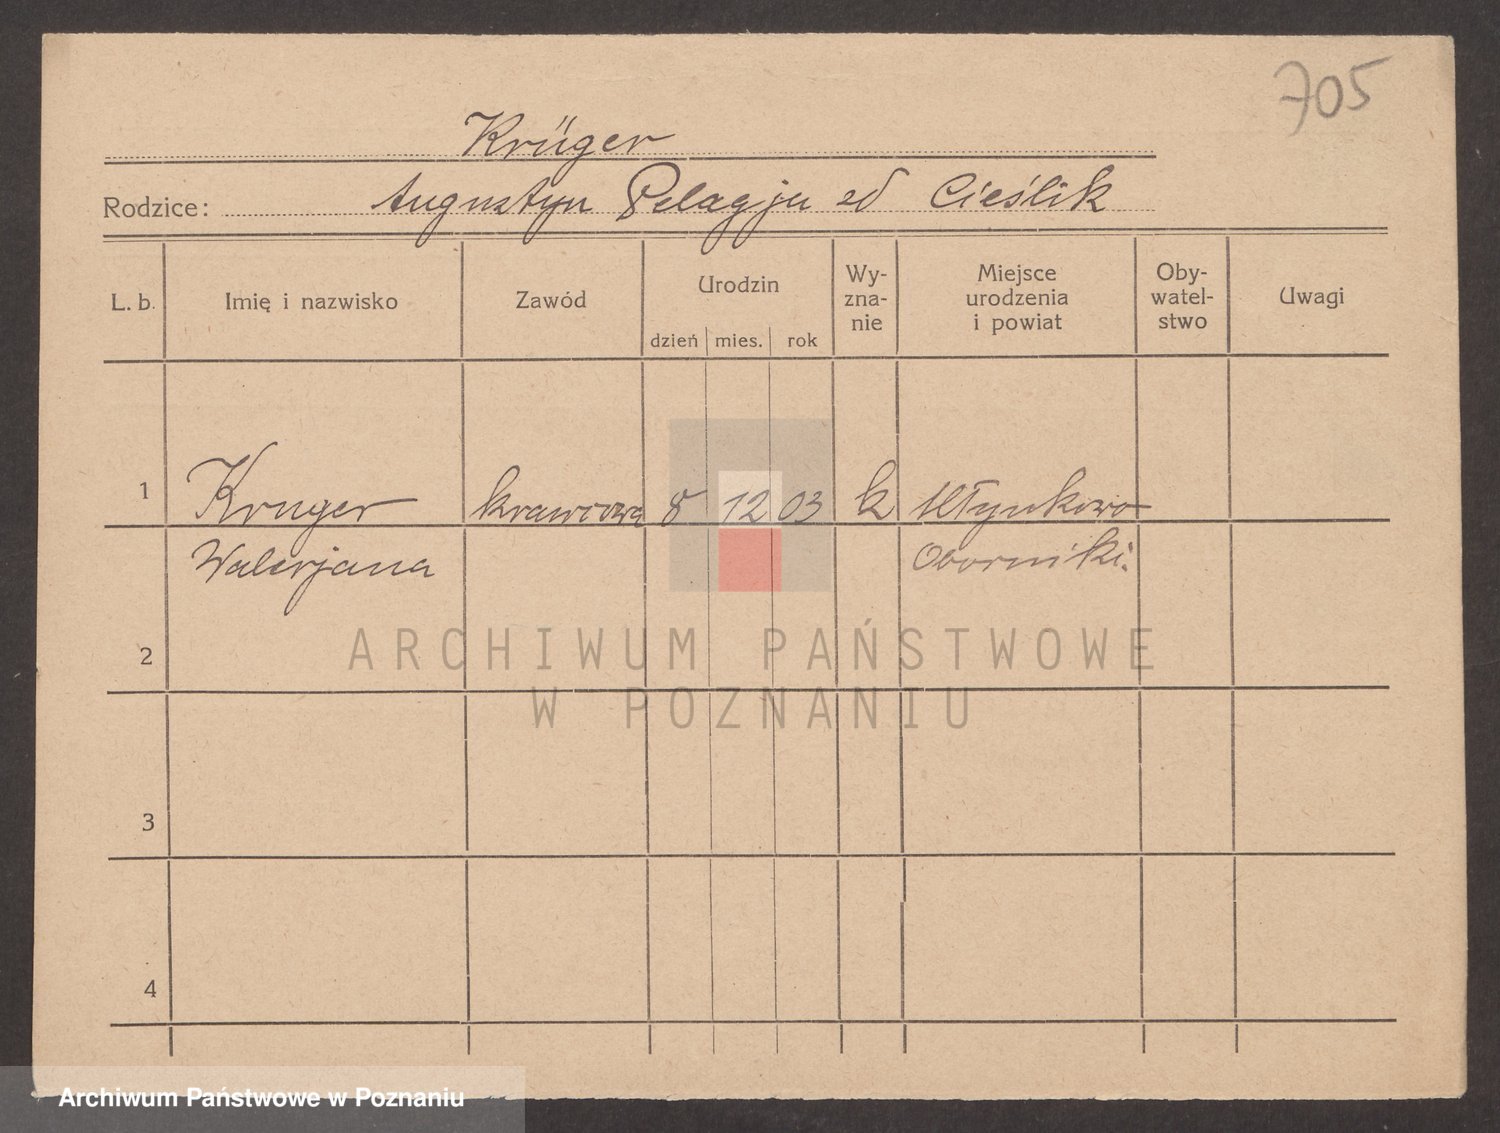 705
Krüger
Rodzice: Augustyn Pelagja zd Cieślik
L. b. Imię i nazwisko Zawód Urodzin Wy-zna-nie Miejsce urodzenia i powiat Oby-watel-stwo Uwagi
dzień mies. rok
1 Kruger krawcowa 8 12 03 k Młynkowo
Walerjana Oborniki.
2
ARCHIWUM PAŃSTWOWE
W POZNANIU
3
4
Archiwum Państwowe w Poznaniu